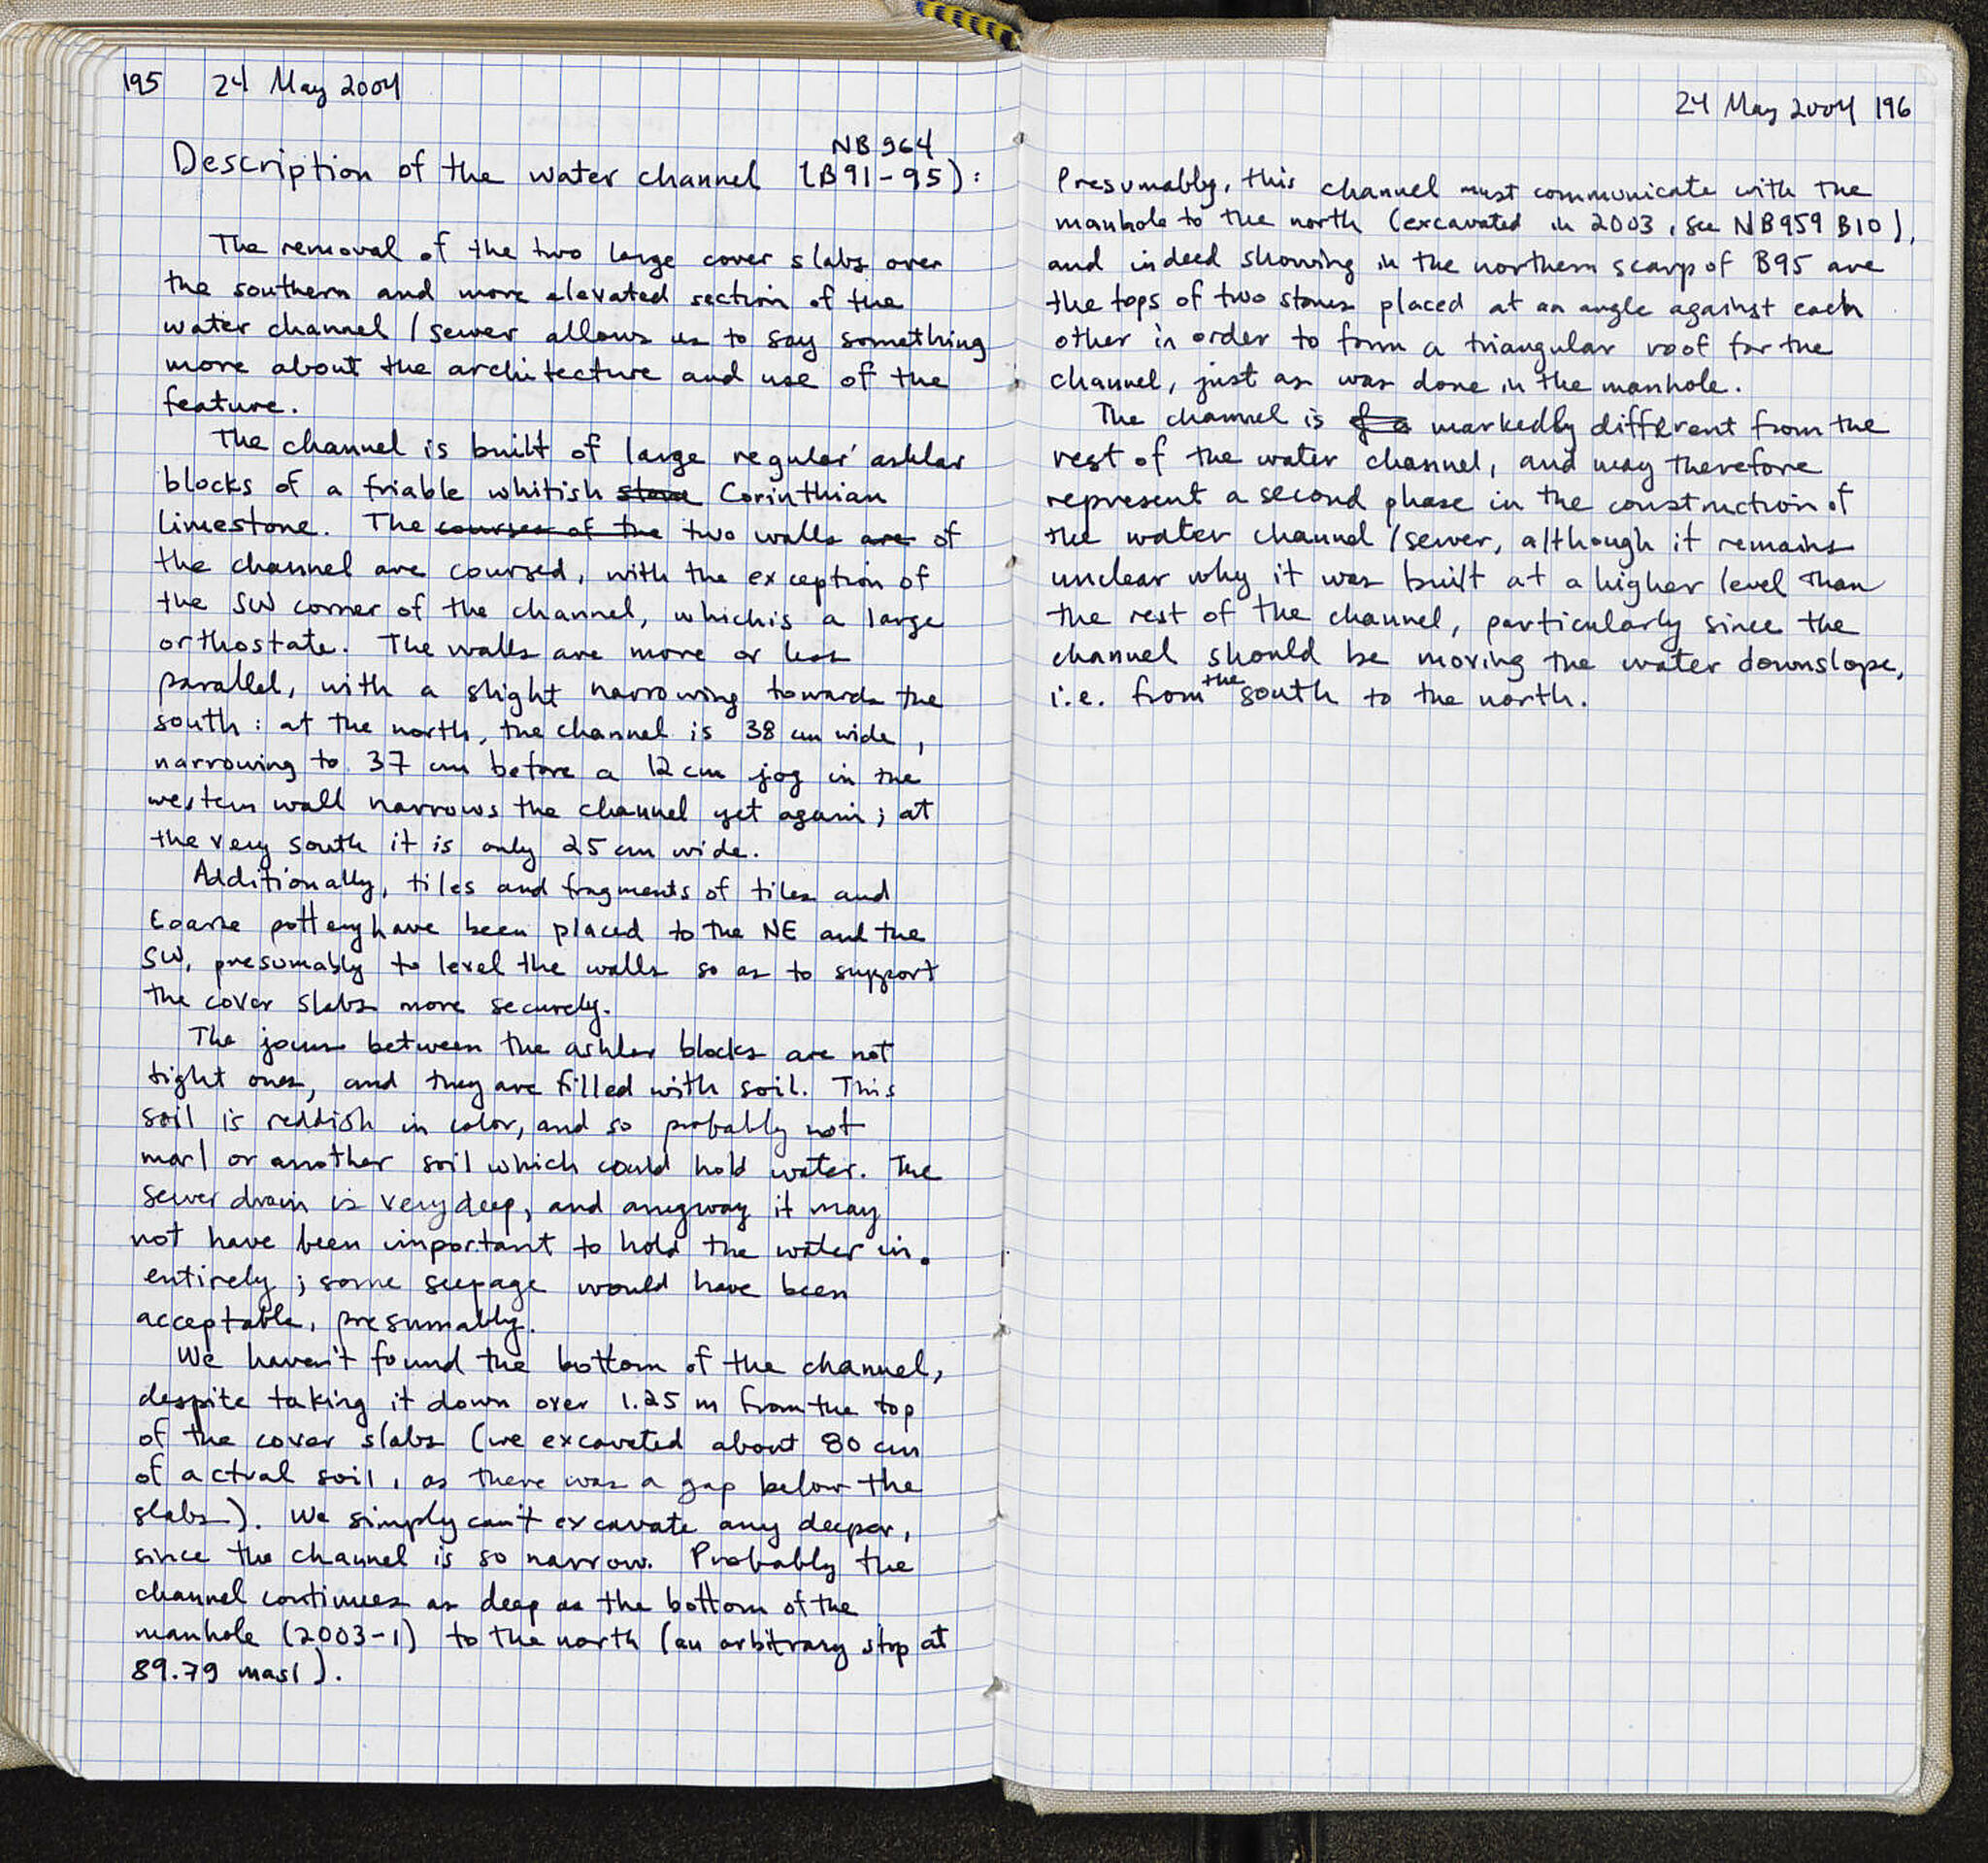 195 24 May 2004
NB 964
Description of the water channel (B91-95):
The removal of the two large cover slabs over
the southern and more elevated section of the
water channel / sewer allows us to say something
more about the architecture and use of the
feature.
The channel is built of large regular ashlar
blocks of a friable whitish stone Corinthian
limestone. The courses of the two walls are of
the channel are coursed, with the exception of
the SW corner of the channel, which is a large
orthostate. The walls are more or less
parallel, with a slight narrowing towards the
south: at the north, the channel is 38 cm wide,
narrowing to 37 cm before a 12 cm jog in the
western wall narrows the channel yet again; at
the very south it is only 25 cm wide.
Additionally, tiles and fragments of tiles and
coarse pottery have been placed to the NE and the
SW, presumably to level the walls so as to support
the cover slabs more securely.
The joins between the ashlar blocks are not
tight ones, and they are filled with soil. This
soil is reddish in color, and so probably not
marl or another soil which could hold water. The
sewer drain is very deep, and anyway it may
not have been important to hold the water in
entirely; some seepage would have been
acceptable, presumably.
We haven't found the bottom of the channel,
despite taking it down over 1.25 m from the top
of the cover slabs (we excavated about 80 cm
of actual soil, as there was a gap below the
slabs). We simply can't excavate any deeper,
since the channel is so narrow. Probably the
channel continues as deep as the bottom of the
manhole (2003-1) to the north (an arbitrary stop at
89.79 masl).
24 May 2004 196
Presumably, this channel must communicate with the
manhole to the north (excavated in 2003, see NB959 B10),
and indeed showing in the northern scarp of B95 are
the tops of two stones placed at an angle against each
other in order to form a triangular roof for the
channel, just as was done in the manhole.
The channel is markedly different from the
rest of the water channel, and may therefore
represent a second phase in the construction of
the water channel / sewer, although it remains
unclear why it was built at a higher level than
the rest of the channel, particularly since the
channel should be moving the water downslope,
i.e. from the south to the north.